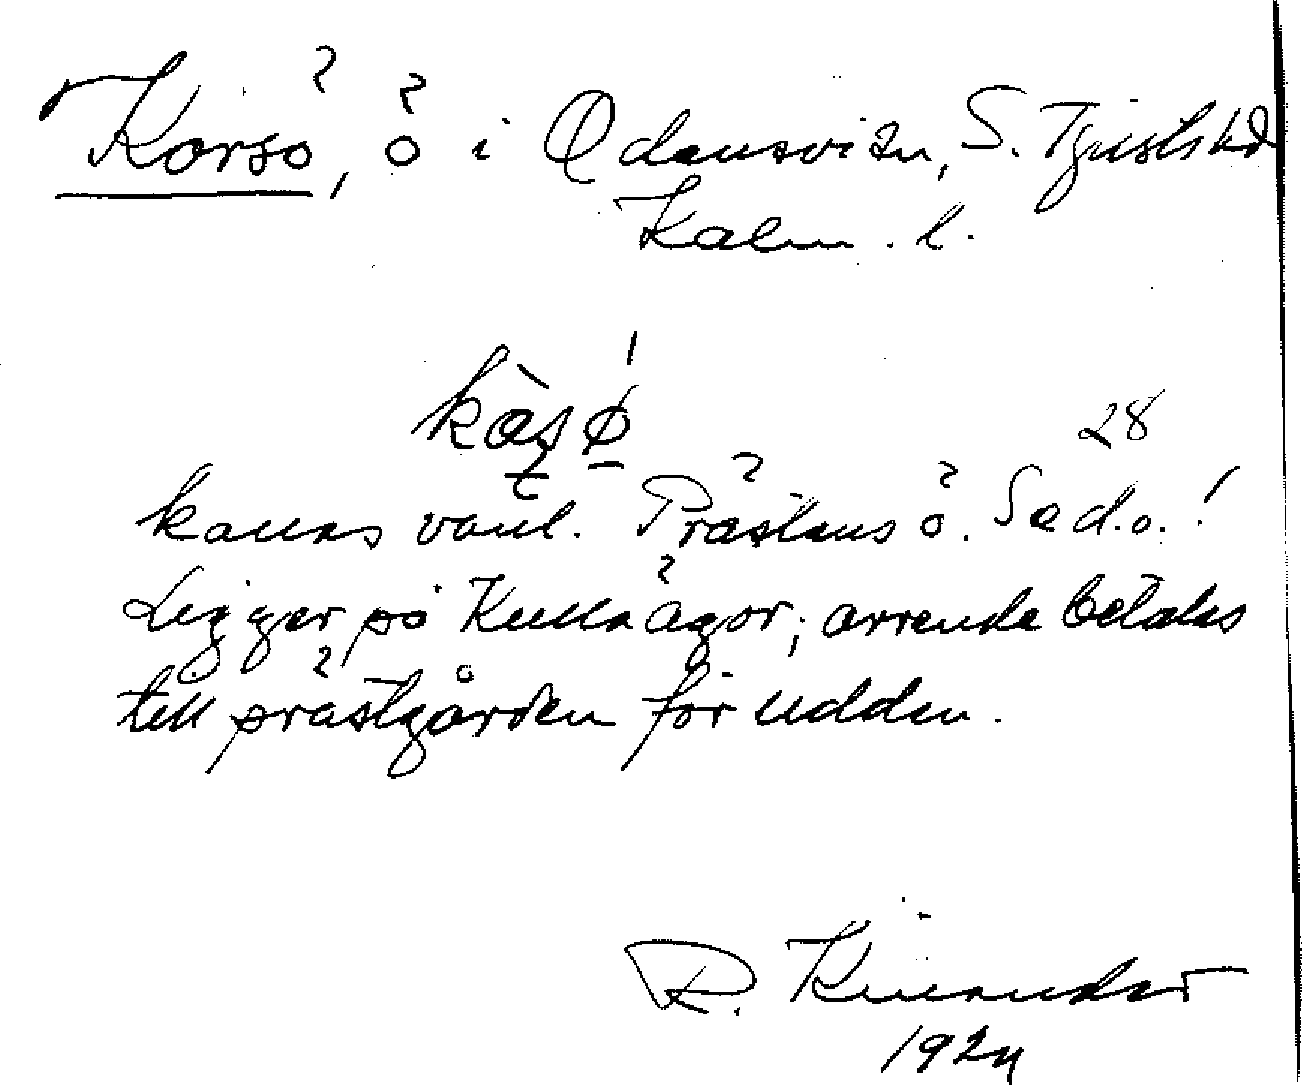 Korsö, ö i Odensvi sn, S. Tjusts hd
Kalm. l.
28
kallas vanl. Prästens ö. Se d.o.!
Ligger på Kulla ägor; arrende betalas
till prästgården för udden.
R. Kinander
1924